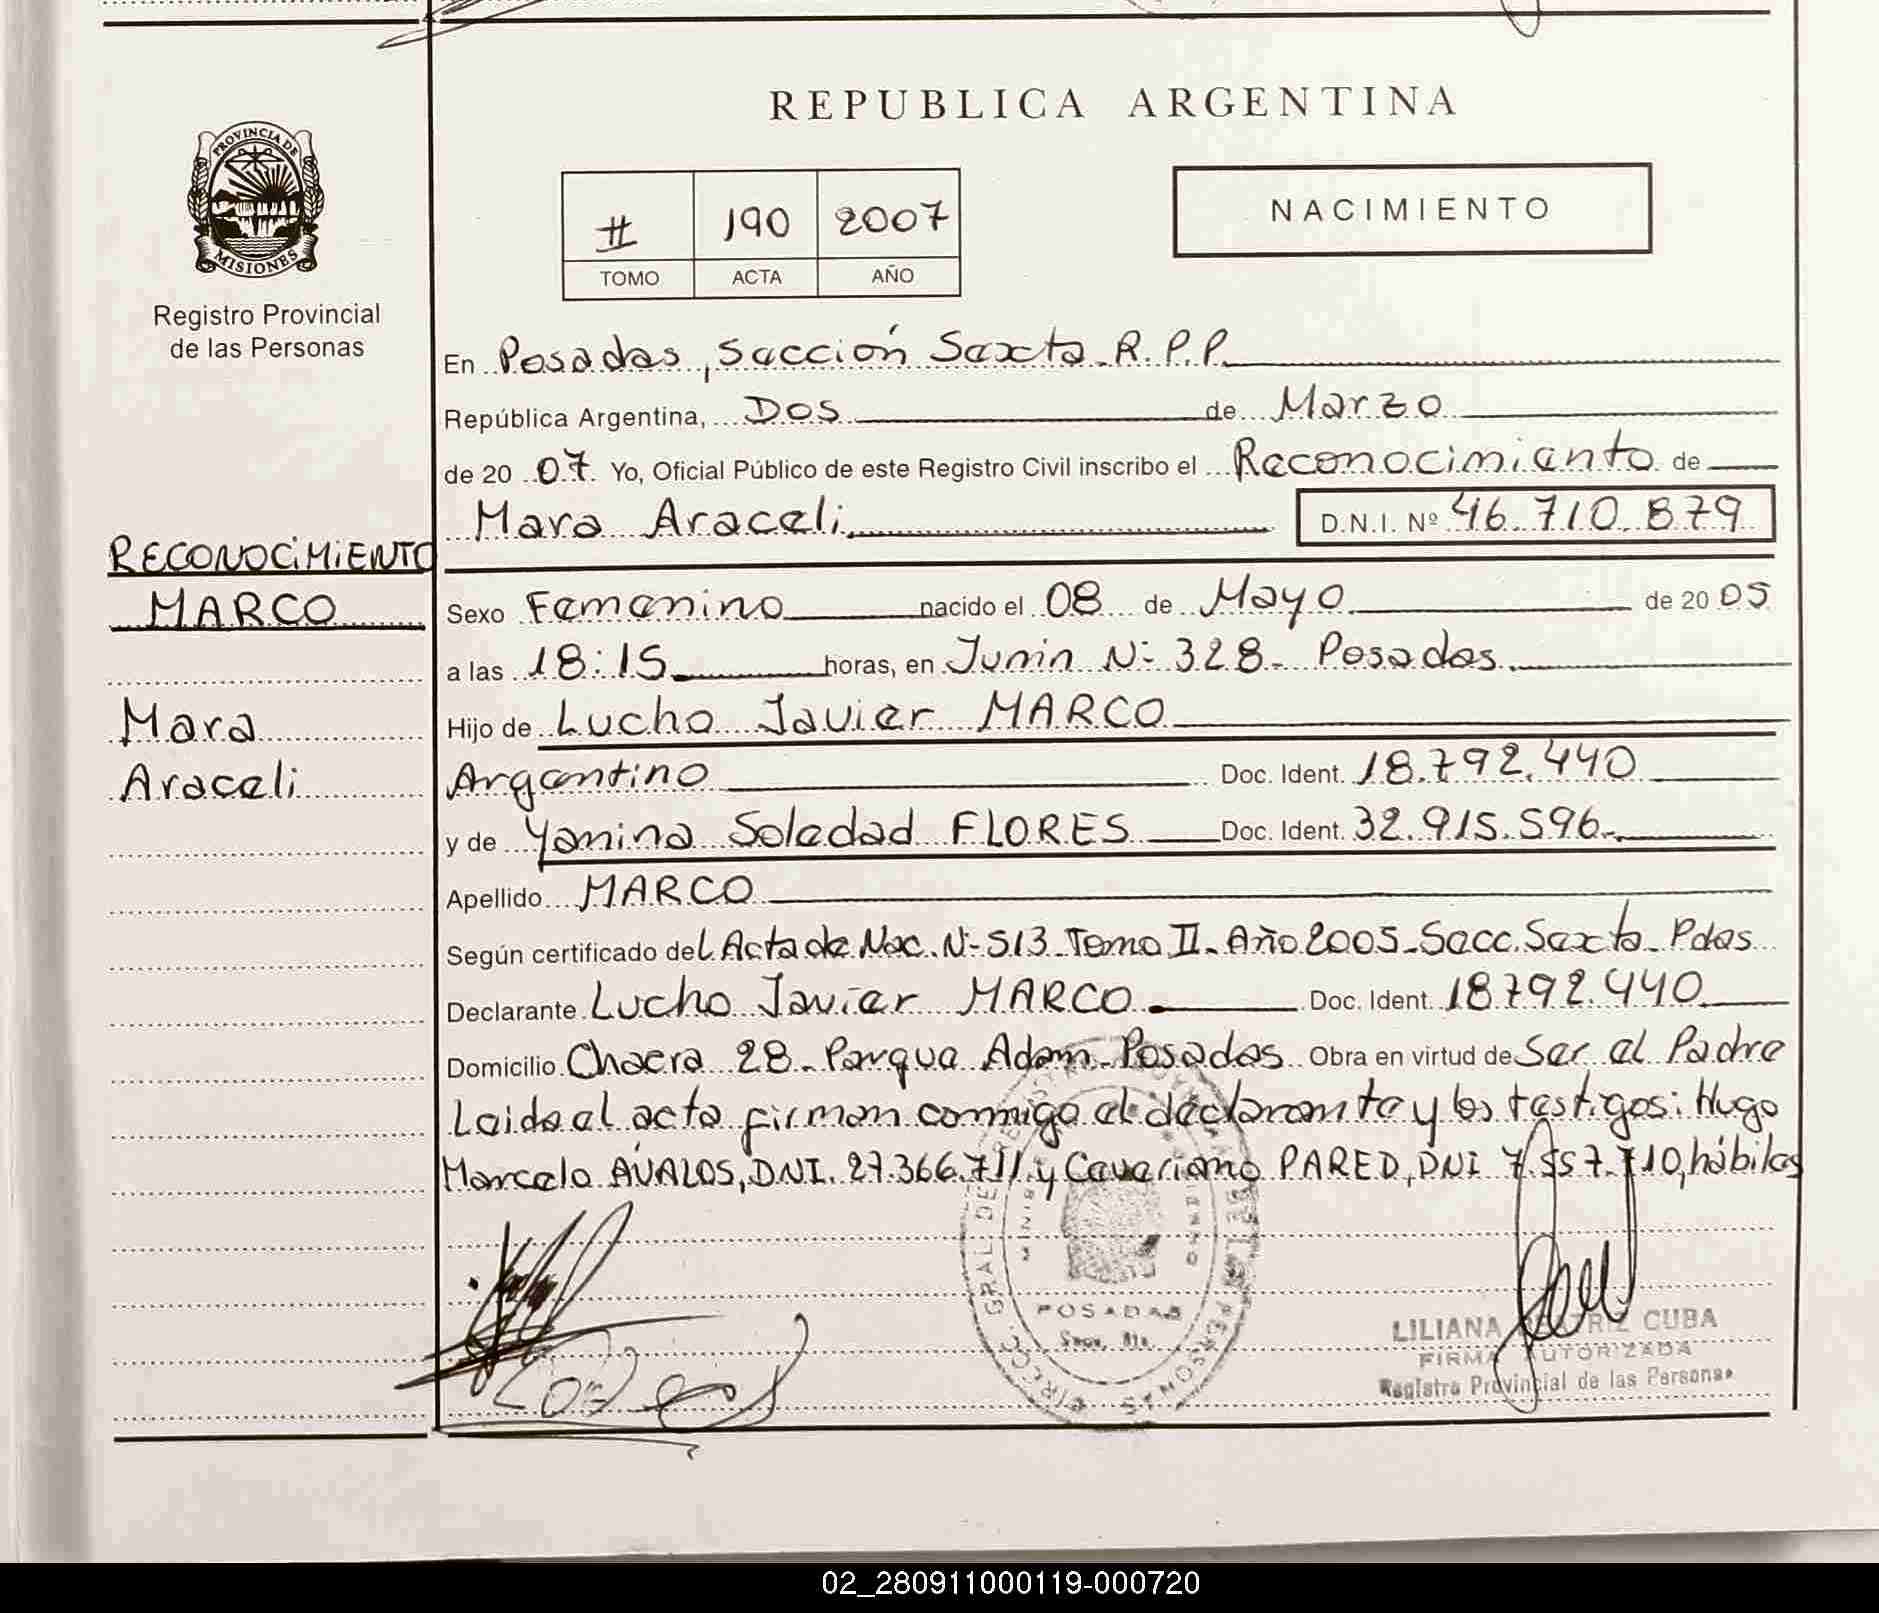 REPUBLICA ARGENTINA
PROVINCIA DE
MISIONES
Registro Provincial
de las Personas
# 190 2007
TOMO ACTA AÑO
NACIMIENTO
En Posadas, Sección Sexta R.P.P.
República Argentina, Dos de Marzo
de 20 07. Yo, Oficial Público de este Registro Civil inscribo el Reconocimiento de
Mara Araceli D.N.I. Nº 46.710.879
RECONOCIMIENTO
MARCO
Mara
Araceli
Sexo Femenino nacido el 08 de Mayo de 20 05
a las 18:15 horas, en Junin Nº 328 - Posadas
Hijo de Lucho Javier MARCO
Argentino Doc. Ident. 18.792.440
y de Yanina Soledad FLORES Doc. Ident. 32.915.596
Apellido MARCO
Según certificado del Acta de Nac. Nº 513 - Tomo II - Año 2005 - Secc. Sexta - Pdas
Declarante Lucho Javier MARCO Doc. Ident. 18.792.440
Domicilio 28 - Parque Adam - Posadas Obra en virtud de Ser el Padre
Leida el acta firman conmigo el declarante y los testigos: Hugo
Marcelo ÁVALOS, DNI. 27.366.711 y PARED, DNI hábiles
POSADAS
LILIANA BEATRIZ CUBA
FIRMA AUTORIZADA
Registro Provincial de las Personas
02_280911000119-000720